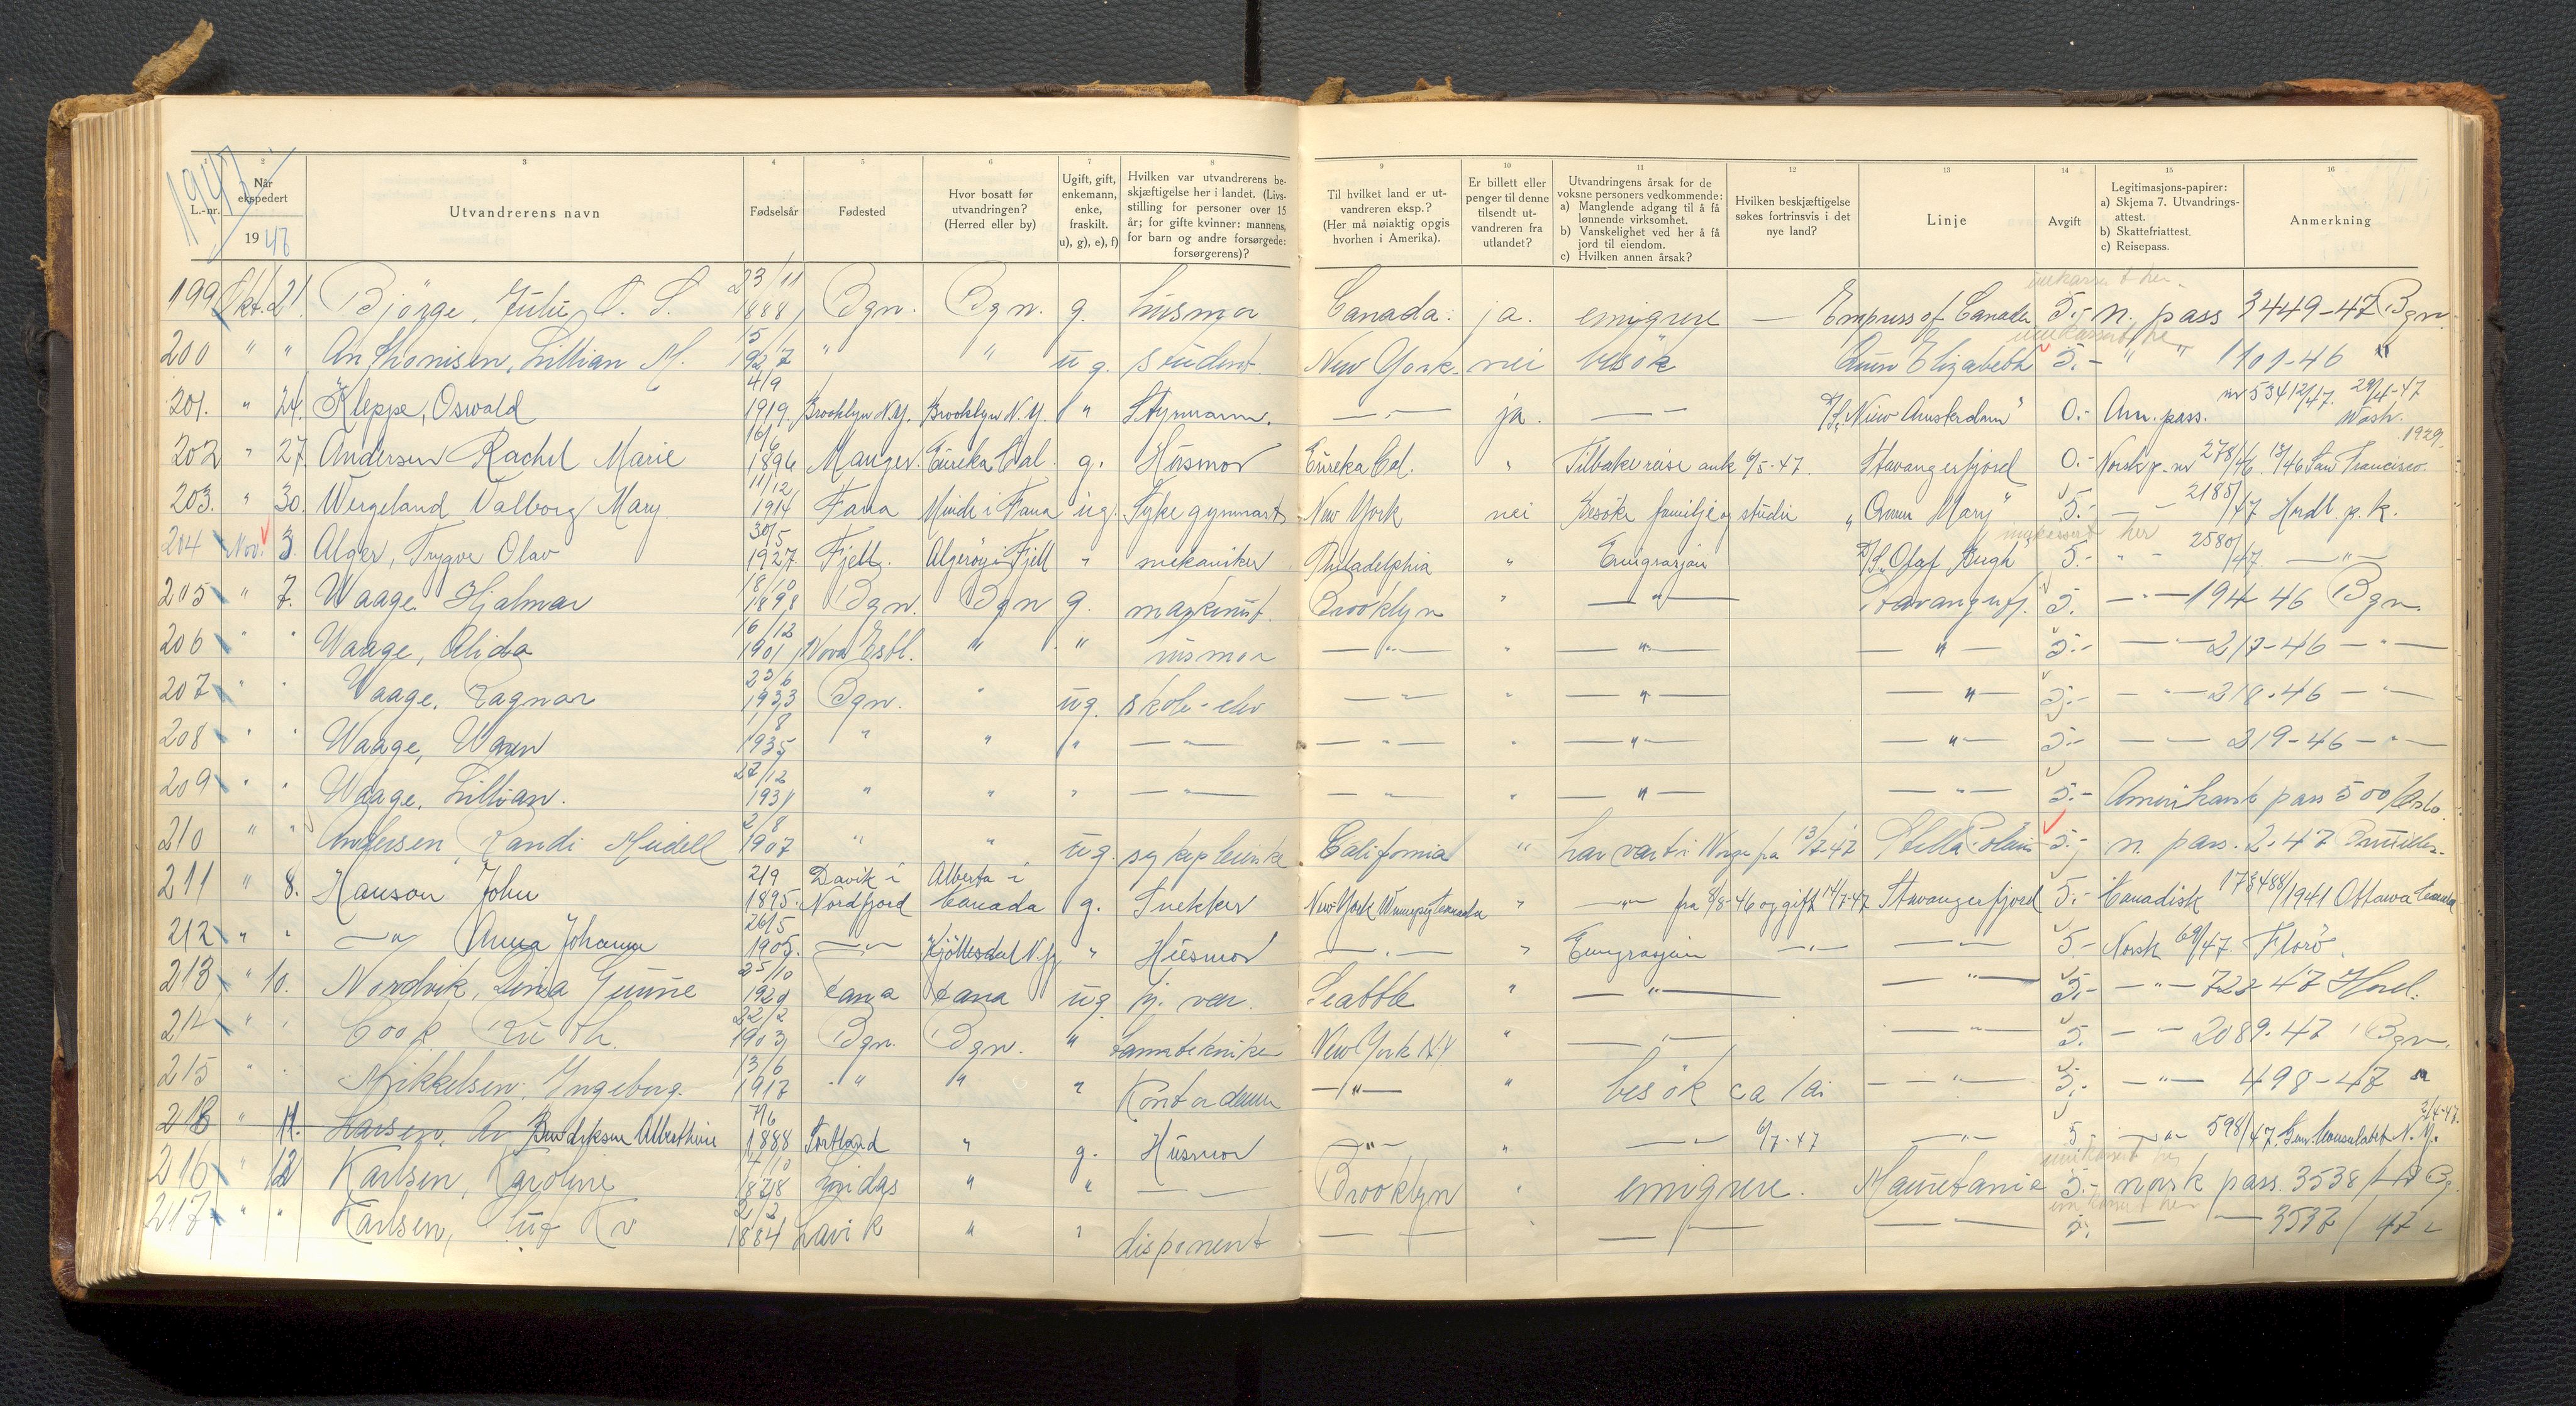 1947
L.-nr.
2
Når ekspedert
1947
3
Utvandrerens navn
4
Fødselsår
5
Fødested
6
Hvor bosatt før utvandringen? (Herred eller by)
7
Ugift, gift, enkemann, enke, fraskilt. u), g), e), f)
8
Hvilken var utvandrerens beskjæftigelse her i landet. (Livsstilling for personer over 15 år; for gifte kvinner: mannens, for barn og andre forsørgede: forsørgerens)?
9
Til hvilket land er utvandreren eksp.? (Her må nøiaktig opgis hvorhen i Amerika).
10
Er billett eller penger til denne tilsendt utvandreren fra utlandet?
11
Utvandringens årsak for de voksne personers vedkommende:
a) Manglende adgang til å få lønnende virksomhet.
b) Vanskelighet ved her å få jord til eiendom.
c) Hvilken annen årsak?
12
Hvilken beskjæftigelse søkes fortrinsvis i det nye land?
13
Linje
14
Avgift
15
Legitimasjons-papirer:
a) Skjema 7. Utvandrings-attest.
b) Skattefriattest.
c) Reisepass.
16
Anmerkning
199 Okt. 21. Bjørge, Julie O. S. 23/11 1888 Bgn. Bgn. g. husmor Canada. ja. emigrere — Empress of Canada 5.- n. pass 3449-47 Bgn.
200 " " Anthonisen, Lillian M. 1927 " " ug. student New York. nei besök Queen Elizabeth 5.- " " 1101-46 "
201. " 24. Kleppe, Oswald 4/9 1919. Brooklyn N.Y. Brooklyn N.Y. " Styrmann. —"— ja. —"— D/S. "Nieuw Amsterdam" 0.- Am. pass. nr 53412/47. 29/4-47 Wash.
202 " 27 Andersen Rachel Marie 16/6 1896 Manger. Eureka Cal. g. Husmor Eureka Cal. " Tilbakereise ank 6/5-47. Stavangerfjord 0.- Norsk p. nr 278/46 San Francisco. 1929.
203. " 30. Wergeland Valborg Mary 11/12 1914 Fana Minde i Fana ug. Sykegymnast New York nei Besøke familje og studie "Queen Mary" 5.- —"— 2185/47 Hordl. p.k.
204 Nov. 3. Alger, Trygve Olav 30/5 1927 Fjell. Algerøy i Fjell " mekaniker Philadelphia " Emigrasjon D/S. Olaf Bergh 5.- " - 2580/47 —"—
205 " 7. Waage Hjalmar 18/10 1898 Bgn. Bgn g. maskinist. Brooklyn " —"— Stavangerfj. 5. —"— 194 46 Bgn.
206 " " Waage, Alida 16/12 1901 " " husmor —"— " —"— —"— 5.- —"— 217-46 —"—
207 " " Waage, Ragnar 23/6 1933 Bgn. " ug. skole-elev —"— " —"— —"— 5.- —"— 218-46 —"—
208 " " Waage, 1/8 1935 " " " —"— —"— " —"— —"— 5.- —"— 219-46 —"—
209 " " Waage, Lillian. 27/12 1931 " " " —"— —"— " —"— —"— 5.- Amerikansk pass 500/Oslo.
210 " " Andersen, Randi Meidell 2/8 1907 " " ug. sykepleierske California " har vært i Norge fra 13/7-47 Stella Polaris 5.- n. pass. 2-47
211 " 8. Hanson John 2/9 1895. Davik i Nordfjord Alberta i Canada g. Snekker New York Winnipeg Canada " —"— fra 8/5-46 og gift 14/7-47 Stavangerfjord 5.- Canadisk 173488/1941 Ottawa Canada
212 " " —"— Anna Johanne 26/5 1905. —"— Kjöllesdal N.fj. " Husmor —"— " Emigrasjon —"— —"— 5.- Norsk 69/47. Florö.
213 " 10. Nordvik, Lina 25/10 1929 Fana Fana ug. Seattle " —"— —"— 5.- —"— 722 47 Hord.
214 " " Cook Ruth 22/2 1903 Bgn. Bgn. " tanntekniker New York N.Y " —"— —"— 5. —"— 2089-47 Bgn.
215 " " Mikkelsen. Ingeborg. 13/6 1917 " " " Kontordame —"— " besök ca 1 år —"— 5.- —"— 498-47 "
216 " 11. Larsen, Bendiksen Alberthine 7/6 1888 Tortland " g. Husmor —"— " —"— 6/7-47 —"— 5.- —"— 598/47. Gen. Konsulatet N.Y. 2/4-47.
216 " 12 Karlsen, Karoline Lindås " " —"— Brooklyn " emigrere. Mauretania 5.- norsk pass. 3538/47 Bg.
217 " " Karlsen, 2/2 1884 Lavik " " disponent —"— " —"— —"— 5. —"— 3537/47 "